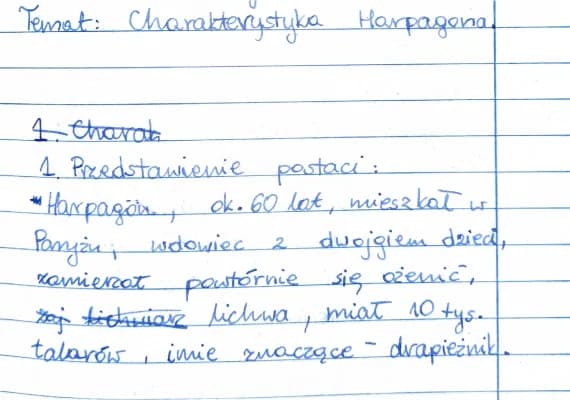 Temat: Charakterystyka Harpagona.
1. Charak
1. Przedstawienie postaci:
- Harpagon, ok. 60 lat, mieszkał w
Paryżu, wdowiec z dwojgiem dzieci,
zamierzał powtórnie się ożenić,
zaj lichwiarz lichwa, miał 10 tys.
talarów, imię znaczące - drapieżnik.